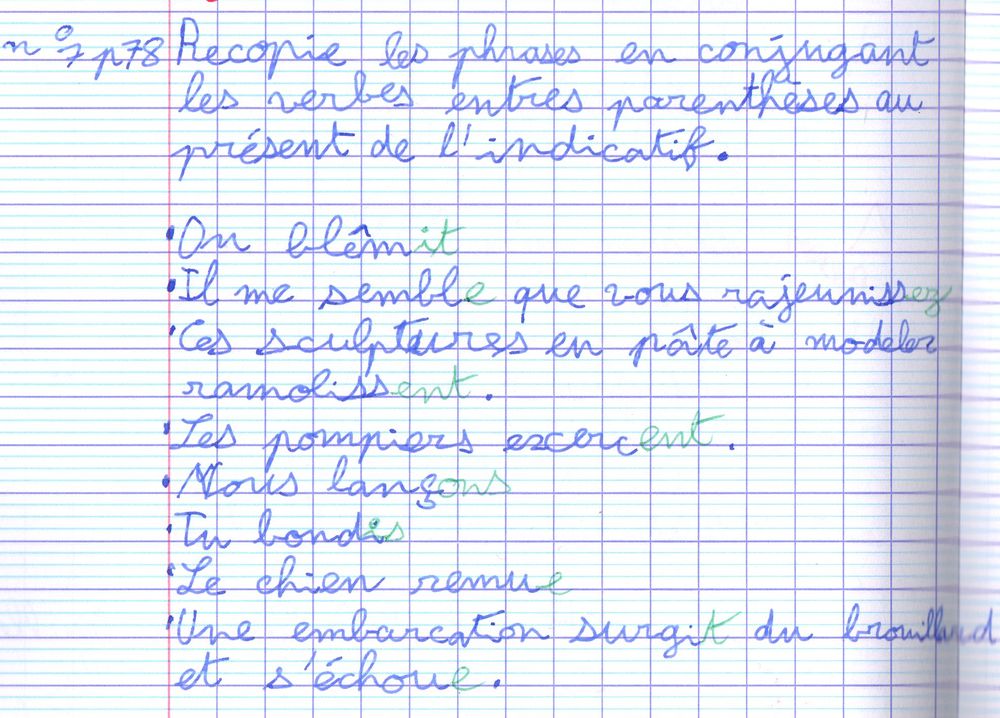 n° 7 p78 Recopie les phrases en conjugant
les verbes entres parenthèses au
présent de l'indicatif.
• On blêmit
• Il me semble que vous rajeunissez
• Ces sculptures en pâte à modeler
ramolissent.
• Les pompiers excercent.
• Nous lançons
• Tu bondis
• Le chien remue
• Une embarcation surgit du brouillard
et s'échoue.